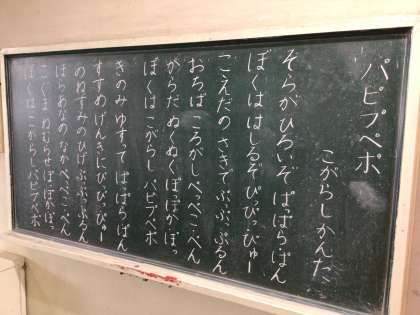 パピプペポ
こがらしかんた
そらがひろいぞ ぱ・ぱらぱん
ぼくははしるぞぴ・ぴ・ぴゅー
こえだのさきでぷ・ぷ・ぷるん
おちば ころがしぺ・ぺ・ペこ・ぺん
からだ ぬくぬくぽ・ぽかぽっ
ぼくは こがらし パピプペポ
きのみ ゆすって ぱ・ぱらぱん
すずめ げんきにぴ・ぴ・ぴゅー
のねずみのひげ ぷ・ぷ・ぷるん
ほらあなのなか ぺ・ぺ・ペこ・ぺん
こぐまねむらせぽ・ぽかぽっ
ぼくは こがらしパピプペポ